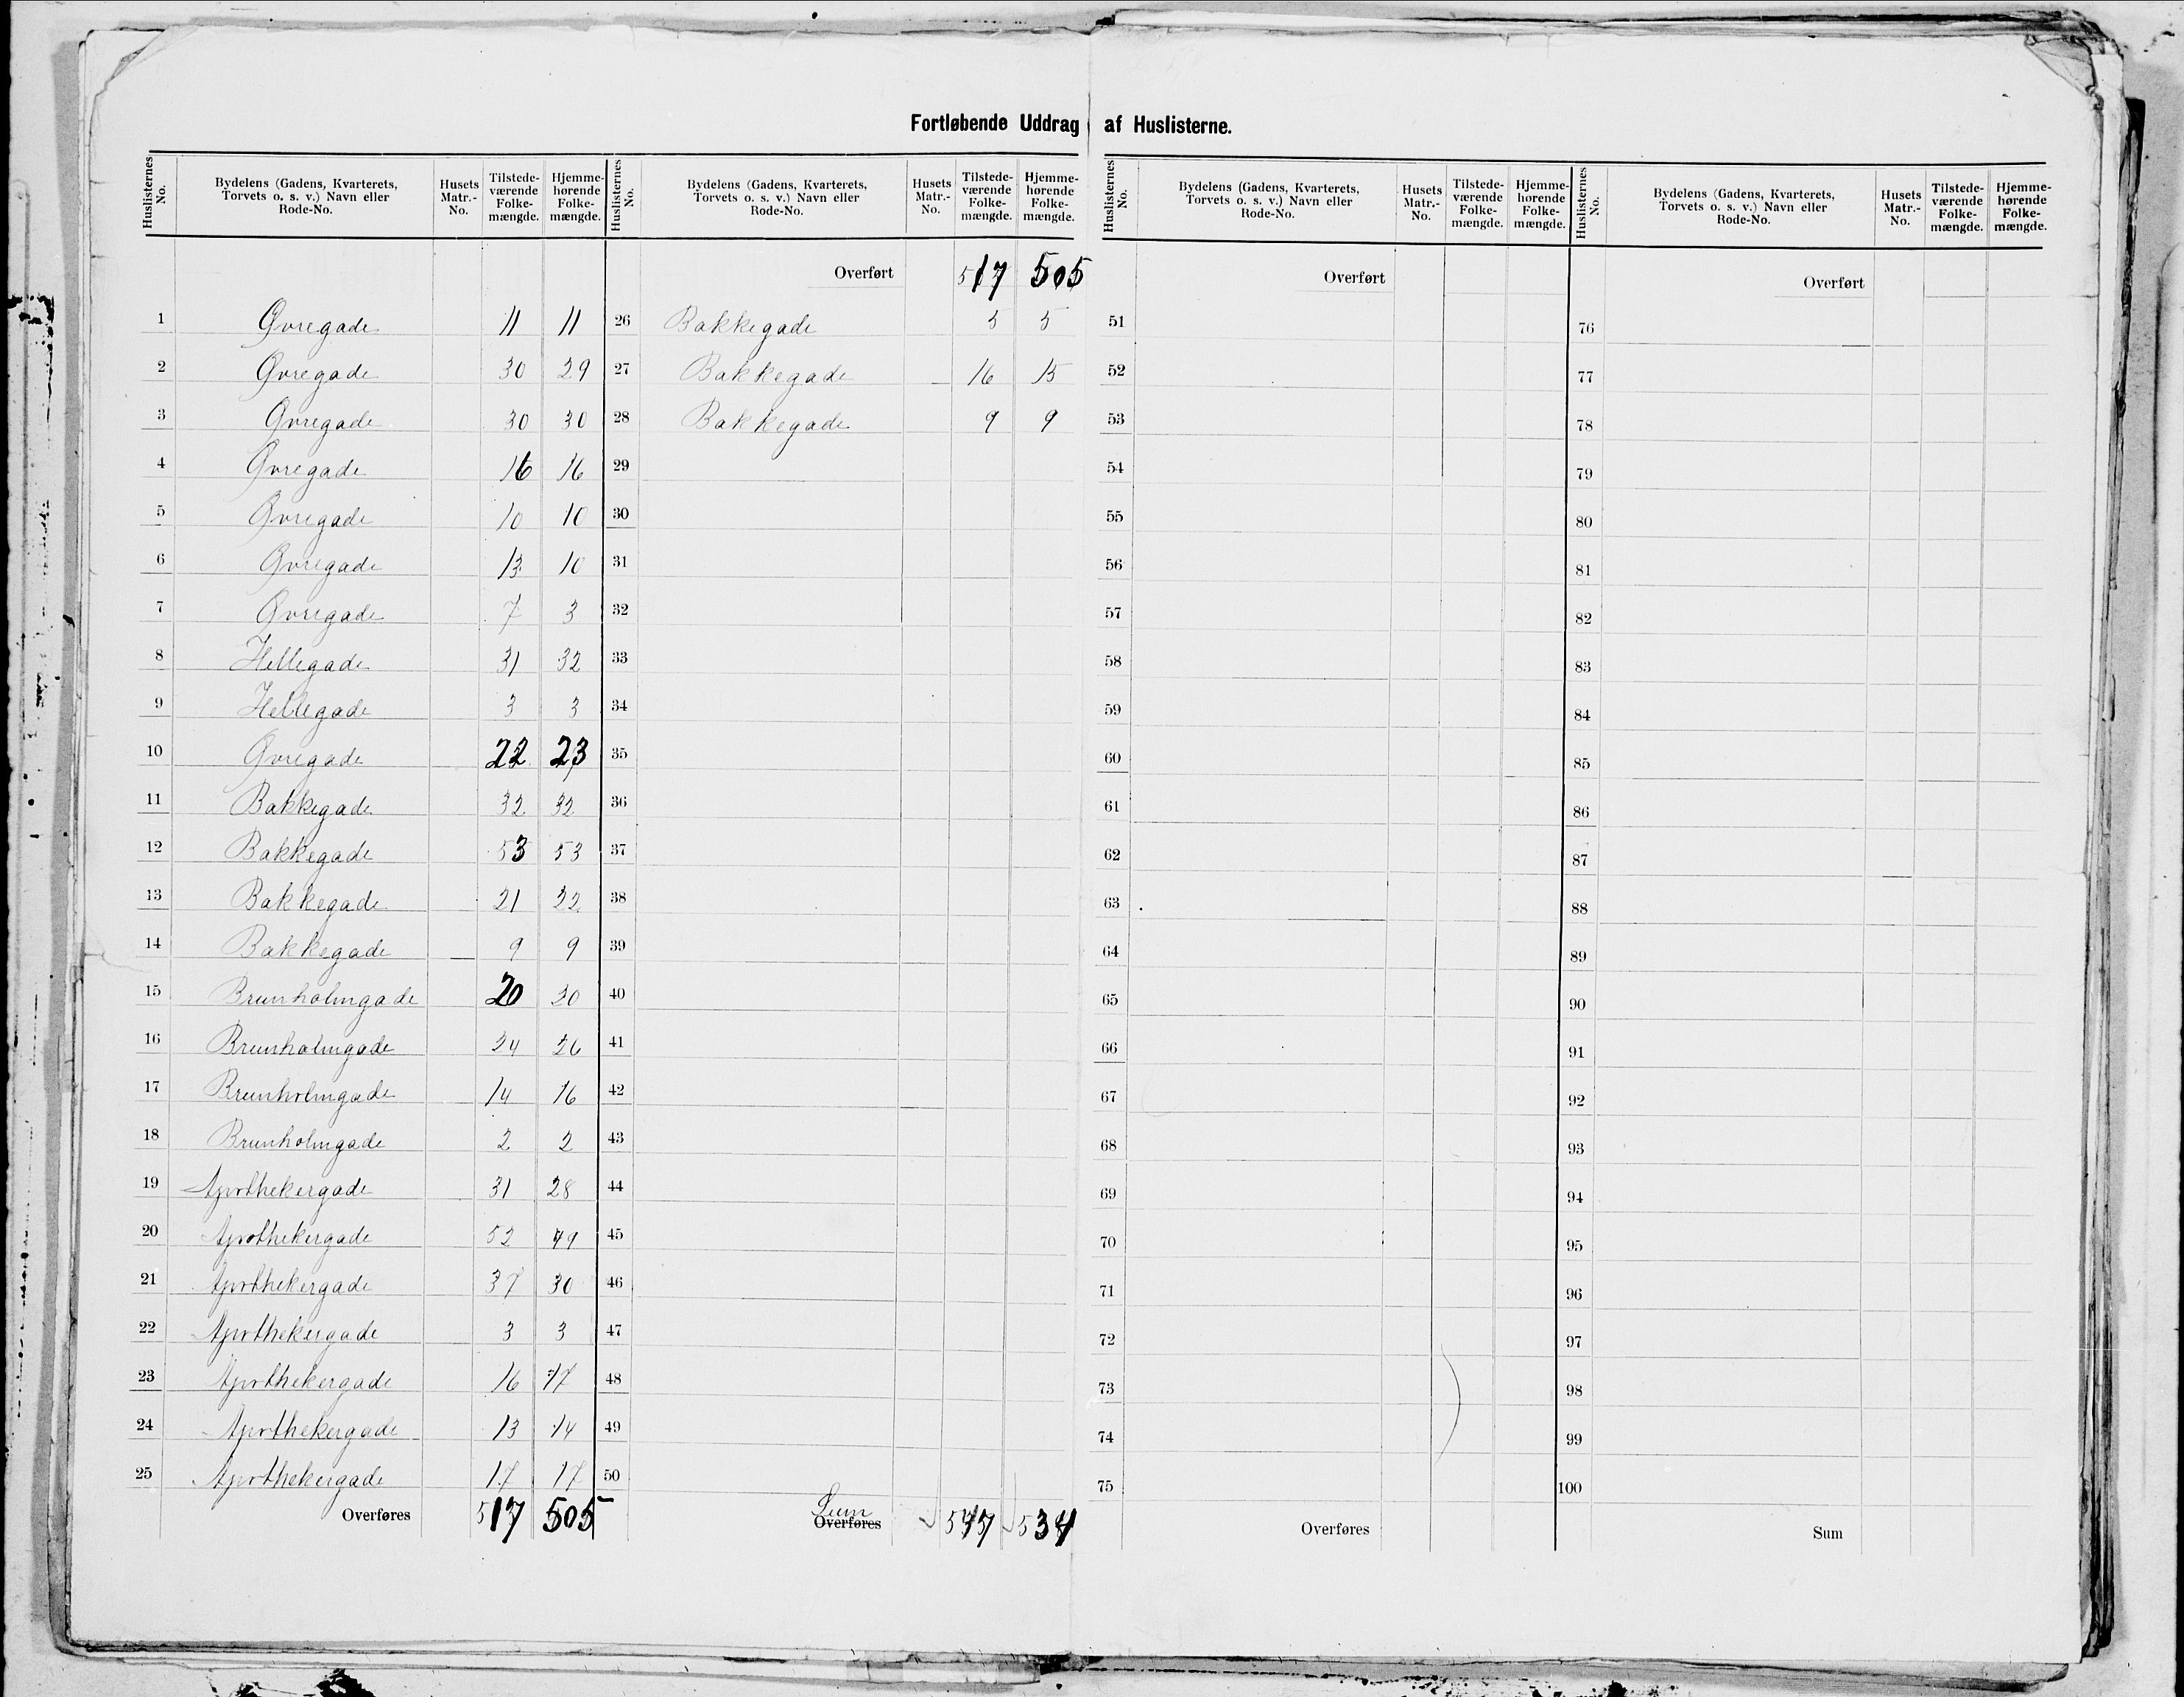 Fortløbende Uddrag af Huslisterne.
Huslisternes No. Bydelens (Gadens, Kvarterets, Torvets o. s. v.) Navn eller Rode-No. Husets Matr.-No. Tilstede-værende Folke-mængde. Hjemme-hørende Folke-mængde.
1 Øvregade 11 11
2 Øvregade 30 29
3 Øvregade 30 30
4 Øvregade 16 16
5 Øvregade 10 10
6 Øvregade 13 10
7 Øvregade 7 3
8 Hellegade 31 32
9 Hellegade 3 3
10 Øvregade 22 23
11 Bakkegade 32 32
12 Bakkegade 53 53
13 Bakkegade 21 22
14 Bakkegade 9 9
15 Brunholmgade 20 20
16 Brunholmgade 24 26
17 Brunholmgade 14 16
18 Brunholmgade 2 2
19 Apothekergade 31 28
20 Apothekergade 52 49
21 Apothekergade 37 30
22 Apothekergade 3 3
23 Apothekergade 16 17
24 Apothekergade 13 14
25 Apothekergade 17 17
Overføres 517 505
Huslisternes No. Bydelens (Gadens, Kvarterets, Torvets o. s. v.) Navn eller Rode-No. Husets Matr.-No. Tilstede-værende Folke-mængde. Hjemme-hørende Folke-mængde.
Overført 517 505
26 Bakkegade 5 5
27 Bakkegade 16 15
28 Bakkegade 9 9
29
30
31
32
33
34
35
36
37
38
39
40
41
42
43
44
45
46
47
48
49
50
Sum
Overføres 547 534
Huslisternes No. Bydelens (Gadens, Kvarterets, Torvets o. s. v.) Navn eller Rode-No. Husets Matr.-No. Tilstede-værende Folke-mængde. Hjemme-hørende Folke-mængde.
Overført
51
52
53
54
55
56
57
58
59
60
61
62
63
64
65
66
67
68
69
70
71
72
73
74
75
Overføres
Huslisternes No. Bydelens (Gadens, Kvarterets, Torvets o. s. v.) Navn eller Rode-No. Husets Matr.-No. Tilstede-værende Folke-mængde. Hjemme-hørende Folke-mængde.
Overført
76
77
78
79
80
81
82
83
84
85
86
87
88
89
90
91
92
93
94
95
96
97
98
99
100
Sum